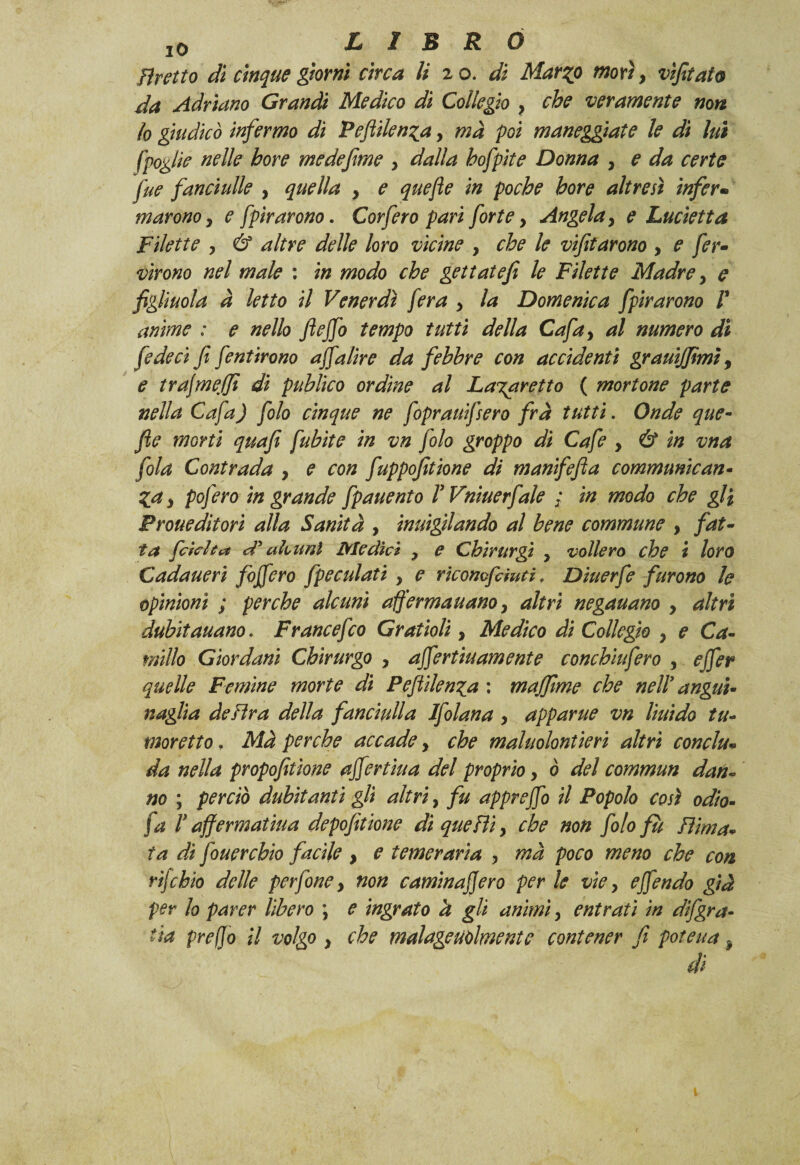 10 LIBRO
ſtretto di cinque giorni circa li 20. di Marzo morì, viſitato
da Adriano Grandi Medico di Collegio , che veramente non
lo giudicò infermo di Peſtilenza, mà poi maneggiate le di lui
ſpoglie nelle hore medeſime , dalla hoſpite Donna , e da certe
ſue fanciulle , quella , e queſte in poche hore altresì infer-
marono, e ſpirarono. Corſero pari ſorte, Angela, e Lucietta
Filette , & altre delle loro vicine , che le viſitarono , e ſer-
virono nel male : in modo che gettateſi le Filette Madre, e
figliuola à letto il Venerdì ſera , la Domenica ſpirarono l'
anime : e nello ſteſſo tempo tutti della Caſa, al numero di
ſedeci ſi ſentirono aſſalire da febbre con accidenti grauiſſimi,
e traſmeſſi di publico ordine al Lazaretto ( mortone parte
nella Caſa) ſolo cinque ne ſoprauiſsero frà tutti. Onde que-
ſte morti quaſi ſubite in vn ſolo groppo di Caſe , & in vna
ſola Contrada , e con ſuppoſitione di manifeſta communican-
za, poſero in grande ſpauento l' Vniuerſale ; in modo che gli
Proueditori alla Sanità , inuigilando al bene commune , fat-
ta ſcielta d' alcuni Medici , e Chirurgi , vollero che i loro
Cadaueri foſſero ſpeculati , e riconoſciuti. Diuerſe furono le
opinioni ; perche alcuni affermauano, altri negauano , altri
dubitauano. Franceſco Gratioli , Medico di Collegio , e Ca-
millo Giordani Chirurgo , aſſertiuamente conchiuſero , eſſer
quelle Femine morte di Peſtilenza : maſſime che nell' angui-
naglia deſtra della fanciulla Iſolana , apparue vn liuido tu-
moretto. Mà perche accade, che maluolontieri altri conclu-
da nella propoſitione aſſertiua del proprio, ò del commun dan-
no ; perciò dubitanti gli altri, fu appreſſo il Popolo così odio-
ſa l' affermatiua depoſitione di queſti, che non ſolo fù ſtima-
ta di ſouerchio facile , e temeraria , mà poco meno che con
riſchio delle perſone, non caminaſſero per le vie, eſſendo già
per lo parer libero ; e ingrato à gli animi, entrati in diſgra-
tia preſſo il volgo , che malageuolmente contener ſi poteua ,
di